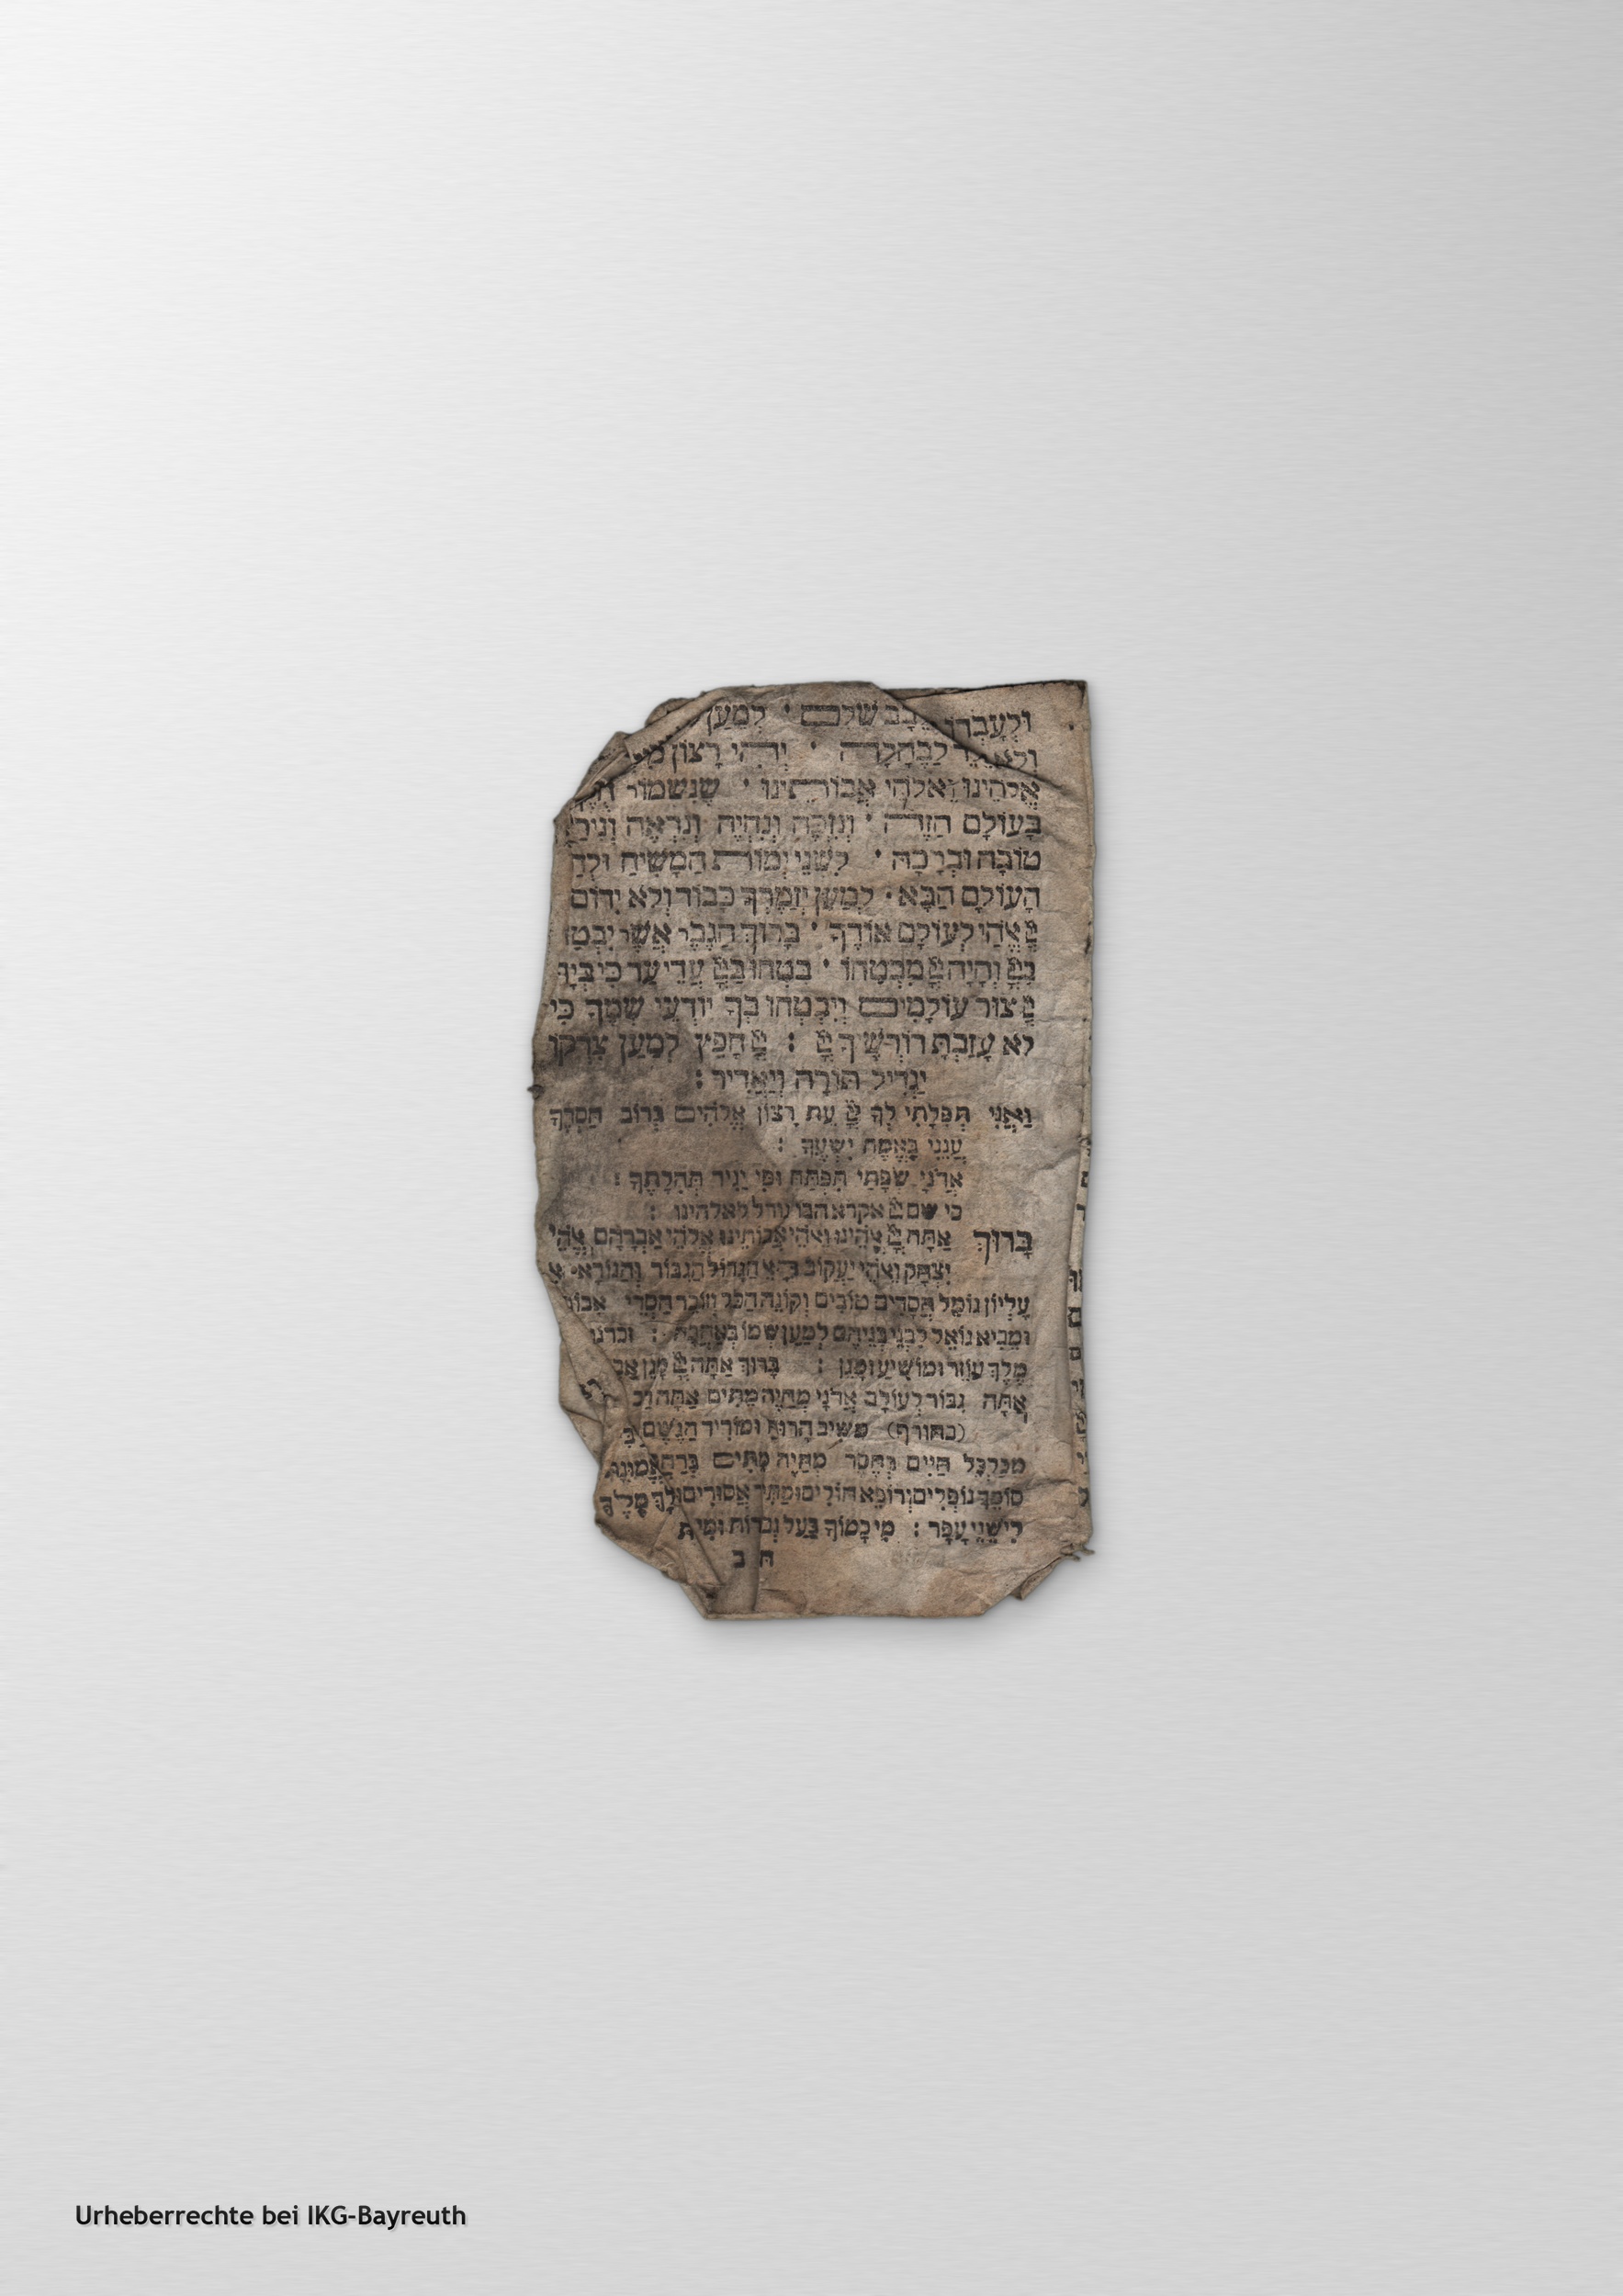 וּלְעָבְדוֹ בְּלֵבָב שָׁלֵם · לְמַעַן
וְלֹא נֵלֵד לַבֶּהָלָה · יְהִי רָצוֹן
אֱלֹהֵינוּ וֵאלֹהֵי אֲבוֹתֵינוּ · שֶׁנִּשְׁמוֹר
בָּעוֹלָם הַזֶּה · וְנִזְכֶּה וְנִחְיֶה וְנִרְאֶה
טוֹבָה וּבְרָכָה · לִשְׁנֵי יְמוֹת הַמָּשִׁיחַ
הָעוֹלָם הַבָּא · לְמַעַן יְזַמֶּרְךָ כָבוֹד וְלֹא יִדּוֹם
אֱלֹהַי לְעוֹלָם אוֹדֶךָּ · בָּרוּךְ הַגֶּבֶר אֲשֶׁר
וְהָיָה מִבְטַחוֹ · בִּטְחוּ עֲדֵי עַד כִּי
צוּר עוֹלָמִים וְיִבְטְחוּ בְךָ יוֹדְעֵי שְׁמֶךָ כִּי
לֹא עָזַבְתָּ דוֹרְשֶׁיךָ : חָפֵץ לְמַעַן צִדְקוֹ
יַגְדִּיל תּוֹרָה וְיַאֲדִיר :
וַאֲנִי תְפִלָּתִי לְךָ עֵת רָצוֹן אֱלֹהִים בְּרוֹב חַסְדֶּךָ
עֲנֵנִי בֶּאֱמֶת יִשְׁעֶךָ :
אֲדֹנָי שְׂפָתַי תִּפְתָּח וּפִי יַגִּיד תְּהִלָּתֶךָ :
כי שם אקרא הבו גודל לאלהינו :
בָּרוּךְ אַתָּה אֱלֹהֵינוּ וֵאלֹהֵי אֲבוֹתֵינוּ אֱלֹהֵי אַבְרָהָם אֱלֹהֵי
יִצְחָק וֵאלֹהֵי יַעֲקוֹב הָאֵל הַגָּדוֹל הַגִּבּוֹר וְהַנּוֹרָא
עֶלְיוֹן גּוֹמֵל חֲסָדִים טוֹבִים וְקוֹנֵה הַכֹּל וְזוֹכֵר חַסְדֵי
וּמֵבִיא גוֹאֵל לִבְנֵי בְנֵיהֶם לְמַעַן שְׁמוֹ בְּאַהֲבָה : זכרנו
מֶלֶךְ עוֹזֵר וּמוֹשִׁיעַ וּמָגֵן : בָּרוּךְ אַתָּה מָגֵן
אַתָּה גִּבּוֹר לְעוֹלָם אֲדֹנָי מְחַיֵּה מֵתִים אַתָּה
(בחורף) מַשִּׁיב הָרוּחַ וּמוֹרִיד הַגֶּשֶׁם
מְכַלְכֵּל חַיִּים בְּחֶסֶד מְחַיֵּה מֵתִים
סוֹמֵךְ נוֹפְלִים וְרוֹפֵא חוֹלִים וּמַתִּיר אֲסוּרִים
לִישֵׁנֵי עָפָר : מִי כָמוֹךָ בַּעַל גְּבוּרוֹת וּמִי
ב ת
Urheberrechte bei IKG-Bayreuth